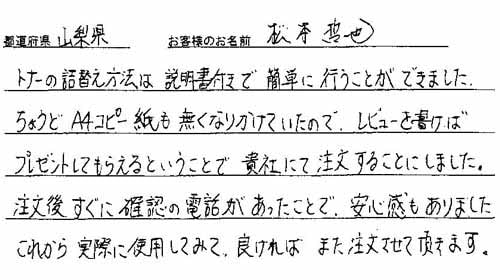 都道府県 山梨県 お客様のお名前 松本 哲也
トナーの詰替え方法は 説明書付きで 簡単に 行うことが できました.
ちょうど A4コピー紙も 無くなりかけていたので、レビューを書けば
プレゼントしてもらえるということで 貴社にて 注文することにしました。
注文後すぐに 確認の電話があったことで、安心感もありました
これから 実際に使用してみて、良ければ また注文させて頂きます。